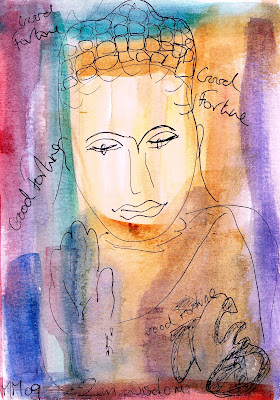 Good
Fortune
Good
Fortune
Good Fortune
Good Fortune
MM09
Zen wisdom